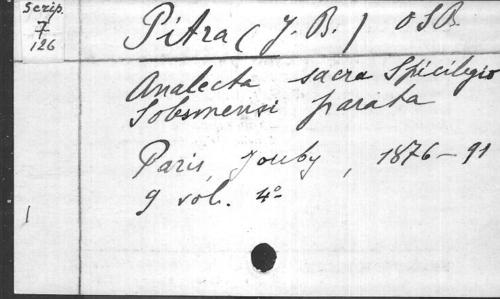 Scrip.
7
126
Pitra (J. B.) OSB.
Analecta sacra Spicilegio
Solesmensi parata
Paris, Jouby, 1876-91
9 vol. 4º